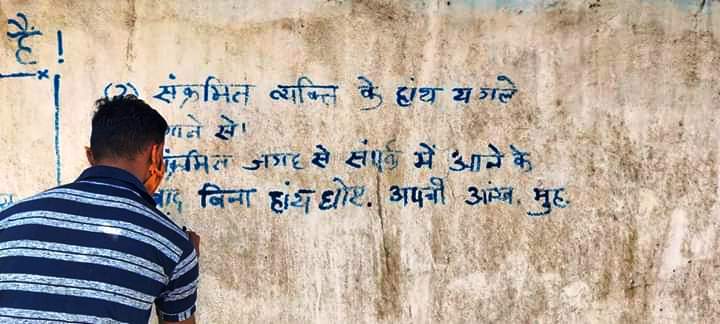 हैं !
(2) संक्रमित व्यक्ति के हांथ य गले
से।
जगह से संपर्क में आने के
बिना हांथ धोए. अपनी आंख. मुह.